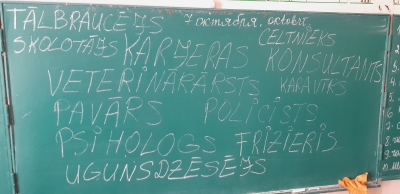 TĀLBRAUCĒJS 7 октября, octobris
SKOLOTĀJS KARJERAS CELTNIEKS
KONSULTANTS
VETERINĀRĀRSTS KARAVĪRS
PAVĀRS POLICISTS
PSIHOLOGS FRIZIERIS
UGUNSDZĒSĒJS